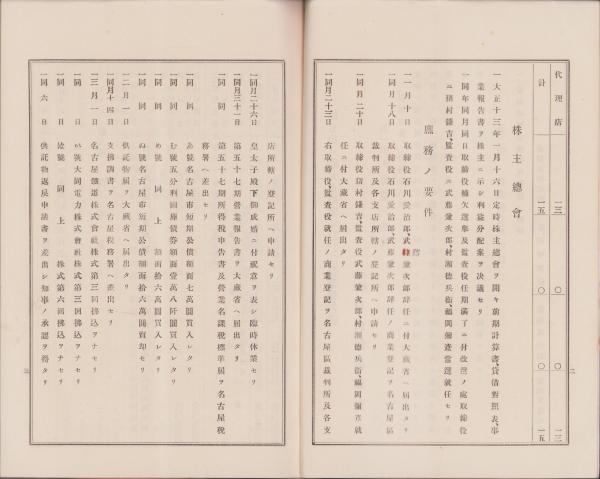 代理店 一三 〇 〇 一三
計 一五 〇 〇 一五
株主總會
一大正十三年一月十六日定時株主總會ヲ開キ前期計算書、貸借對照表、事
業報告書ヲ株主ニ示シ利益分配案ヲ決議セリ
一同年同月同日取締役補欠選擧及監査役任期滿了ニ付改選ノ處取締役
ニ 村鎌吉、監査役ニ武藤兼次郎、村瀨德兵衞、福岡彌 當選就任セリ
庶務ノ要件
一一月十日 取締役石川愛治郎、武藤兼次郎辭任ニ付大藏省ヘ屆出タリ
一同月十八日 取締役石川愛治郎、武藤兼次郎辭任ノ商業登記ヲ名古屋區
裁判所及各支店所轄ノ登記所ヘ申請セリ
一同月二十日 取締役 村鎌吉、監査役武藤兼次郎、村瀨德兵衞、福岡彌 就
任ニ付大藏省ヘ屆出タリ
一同月二十三日 右取締役、監査役就任ノ商業登記ヲ名古屋區裁判所及各支
二
店所轄ノ登記所ヘ申請セリ
一同月二十六日 皇太子殿下御成婚ニ付祝意ヲ表シ臨時休業セリ
一同月三十一日 第五十七期營業報告書ヲ大藏省ヘ屆出タリ
一同 同 第五十七期所得稅申告書及營業名課稅標準屆ヲ名古屋稅
務署ヘ差出セリ
一同 同 あ號名古屋市短期公債額面七萬圓買入レタリ
一同 同 む號五分利國庫債券額面壹萬八阡圓買入レタリ
一同 同 め號 同上 額面拾六萬圓買入レタリ
一同 同 ぬ號名古屋市短期公債額面拾六萬圓賣却セリ
一二月一日 供託物屆ヲ大藏省ヘ屆出タリ
一同月十四日 支拂調書ヲ名古屋稅務署ヘ差出セリ
一三月一日 名古屋鐵道株式會社株式第三回拂込ヲナセリ
一同 日 い號大同電力株式會社株式第三回拂込ヲナセリ
一同 日 號 同上 株式第六回拂込ヲナセリ
一同六日 供託物返戾申請書ヲ差出シ知事ノ承認ヲ得タリ
三